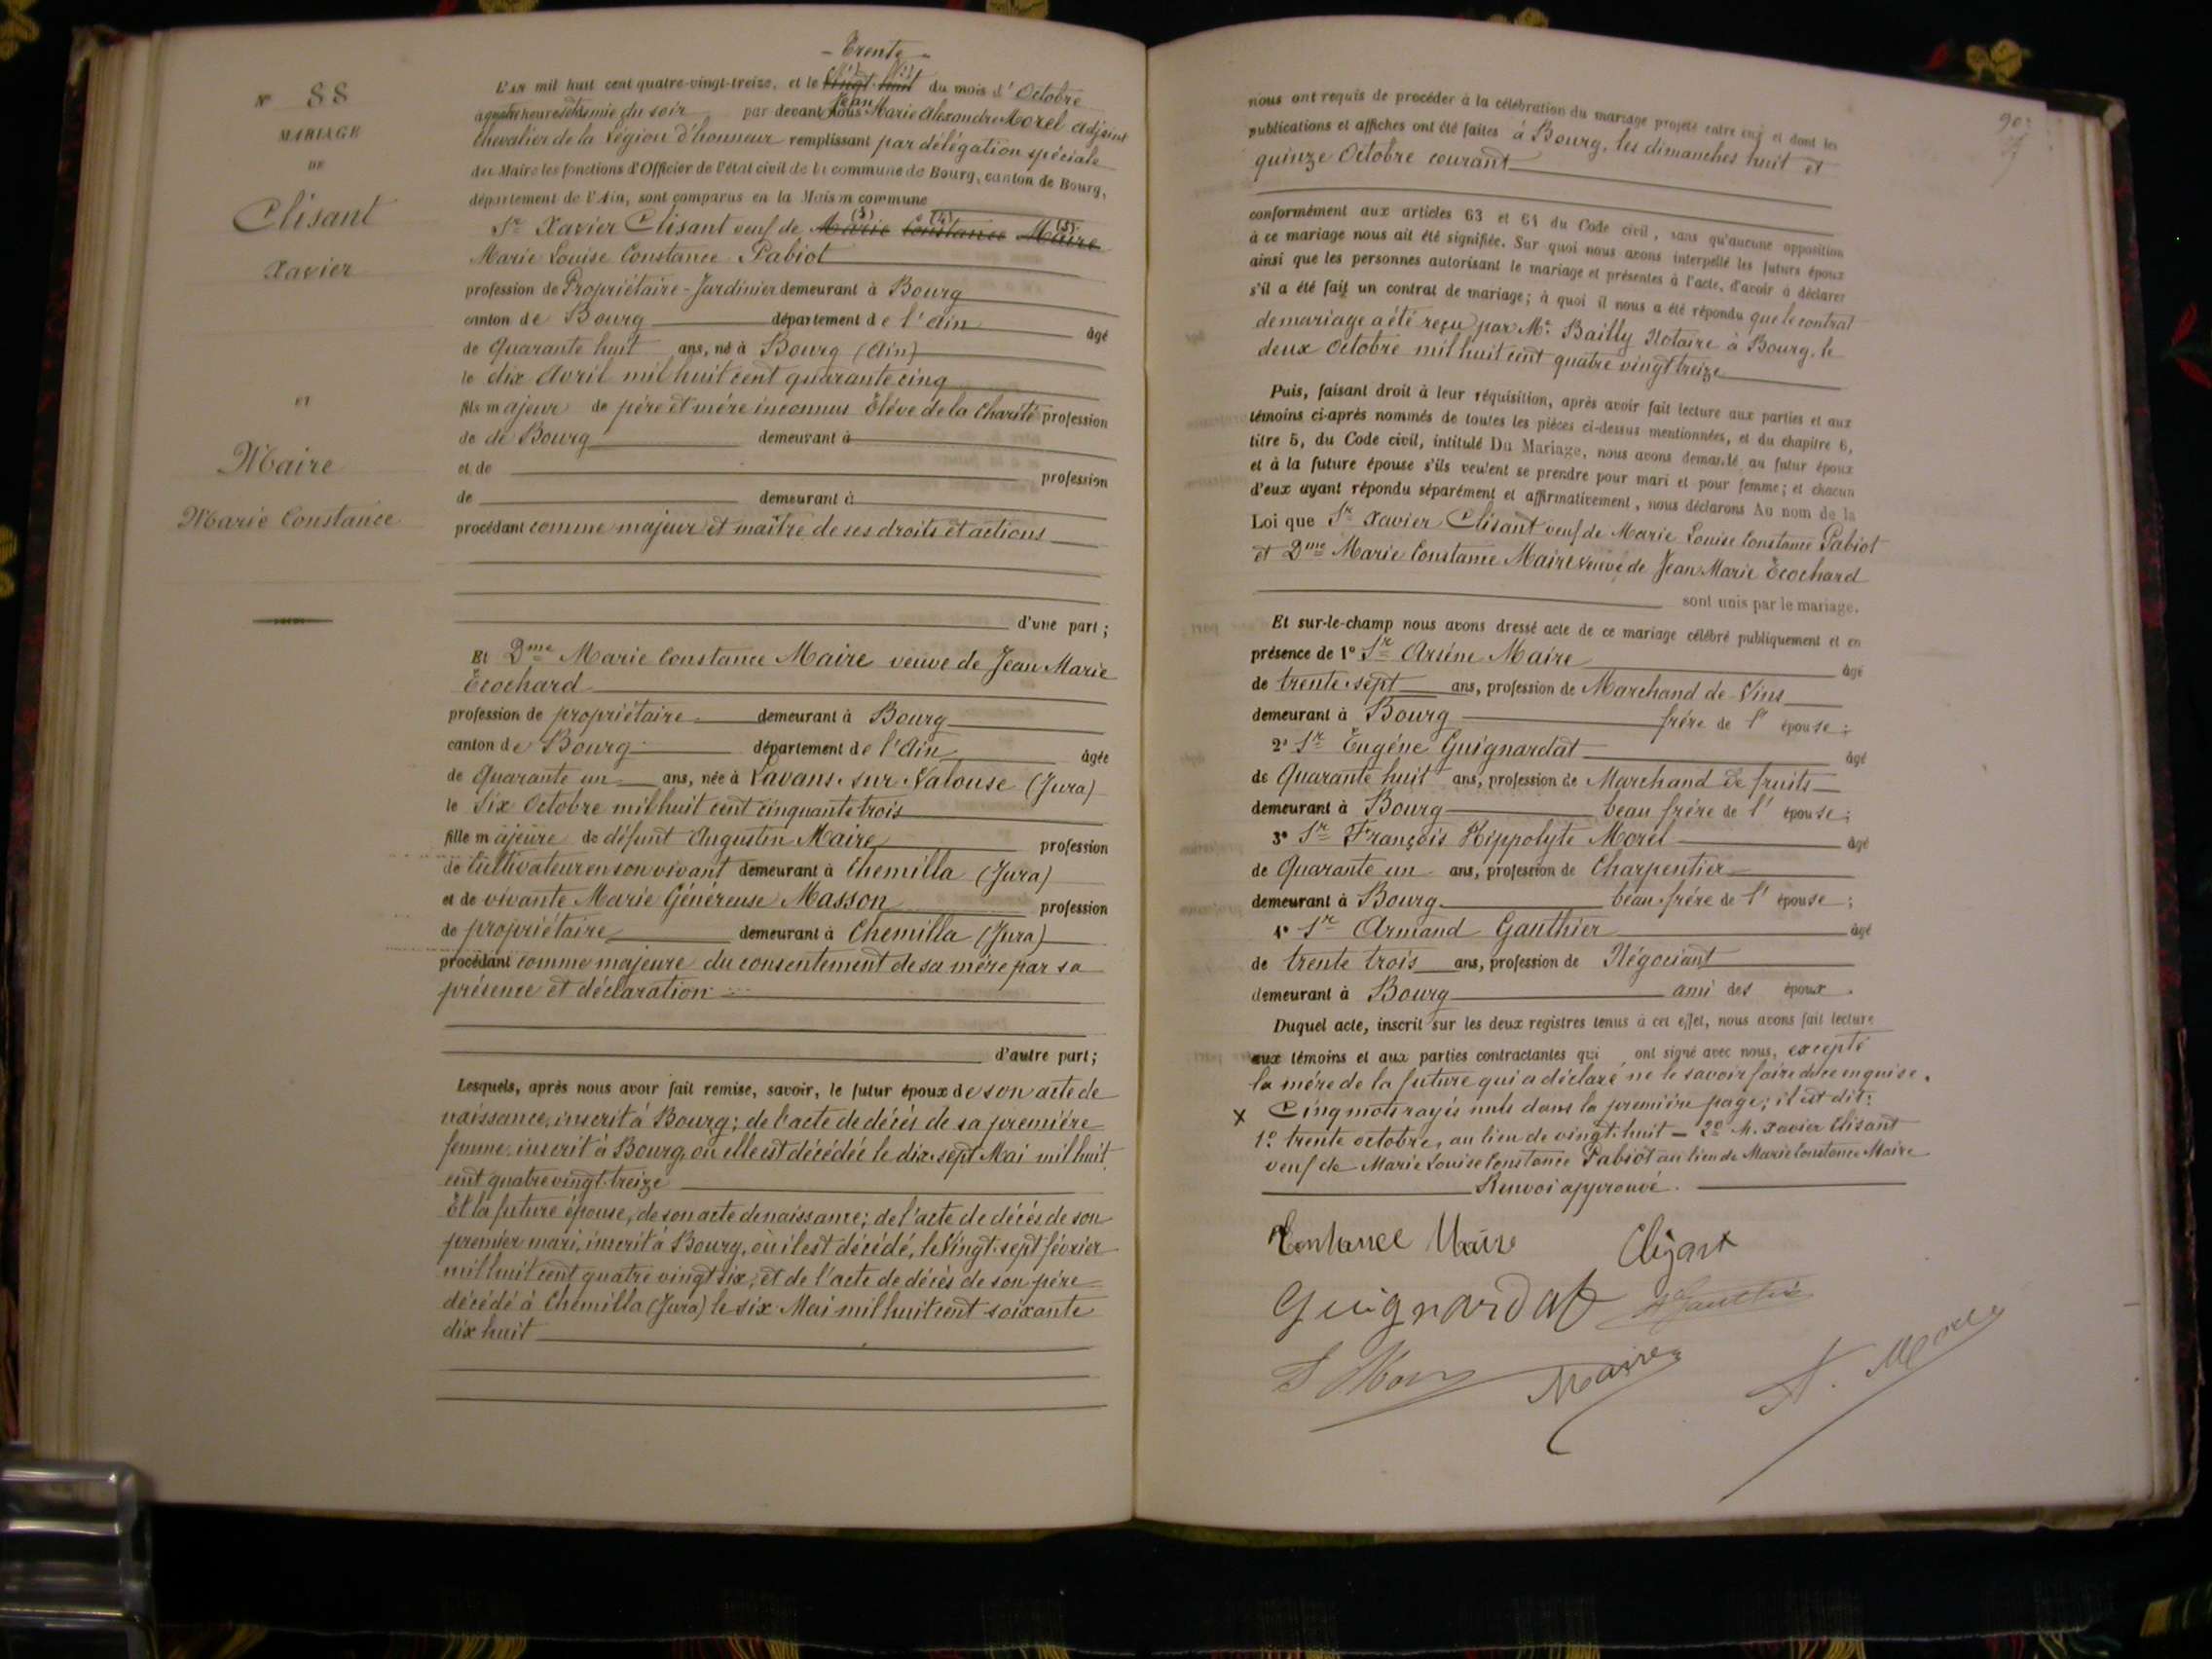 N° 88
MARIAGE
DE
Clisant
Xavier
ET
Maire
Marie Constance
- Trente -
L'AN mil huit cent quatre-vingt-treize, et le vingt-huit du mois d'Octobre
à quatre heures et demie du soir par devant nous Jean Marie Alexandre Morel adjoint
chevalier de la Légion d'honneur remplissant par délégation spéciale
du Maire les fonctions d'Officier de l'état civil de la commune de Bourg, canton de Bourg,
département de l'Ain, sont comparus en la Maison commune
Sr Xavier Clisant veuf de Marie Constance Maire
Marie Louise Constance Pabiot
profession de Propriétaire-Jardinier demeurant à Bourg
canton de Bourg département de l'Ain âgé
de Quarante huit ans, né à Bourg (Ain)
le dix Avril mil huit cent quarante cinq
fils majeur de père et mère inconnus Élève de la Charité profession
de de Bourg demeurant à
et de profession
de demeurant à
procédant comme majeur et maître de ses droits et actions
d'une part ;
Et Dme Marie Constance Maire veuve de Jean Marie
Ecochard
profession de propriétaire demeurant à Bourg
canton de Bourg département de l'Ain âgée
de Quarante un ans, née à Lavans-sur-Valouse (Jura)
le Six Octobre mil huit cent cinquante trois
fille majeure de défunt Augustin Maire profession
de Cultivateur en son vivant demeurant à Chemilla (Jura)
et de vivante Marie Généreuse Masson profession
de propriétaire demeurant à Chemilla (Jura)
procédant comme majeure du consentement de sa mère par sa
présence et déclaration
d'autre part ;
Lesquels, après nous avoir fait remise, savoir, le futur époux de son acte de
naissance, inscrit à Bourg ; de l'acte de décès de sa première
femme inscrit à Bourg, où elle est décédée le dix-sept Mai mil huit
cent quatre vingt-treize
Et la future épouse, de son acte de naissance ; de l'acte de décès de son
premier mari, inscrit à Bourg, où il est décédé, le Vingt-sept février
mil huit cent quatre vingt six ; et de l'acte de décès de son père
décédé à Chemilla (Jura) le six Mai mil huit cent soixante
dix huit
90
nous ont requis de procéder à la célébration du mariage projeté entre eux et dont les
publications et affiches ont été faites à Bourg, les dimanches huit et
quinze Octobre courant
conformément aux articles 63 et 64 du Code civil, sans qu'aucune opposition
à ce mariage nous ait été signifiée. Sur quoi nous avons interpellé les futurs époux
ainsi que les personnes autorisant le mariage et présentes à l'acte, d'avoir à déclarer
s'il a été fait un contrat de mariage ; à quoi il nous a été répondu que le contrat
de mariage a été reçu par Me Bailly Notaire à Bourg, le
deux Octobre mil huit cent quatre vingt treize
Puis, faisant droit à leur réquisition, après avoir fait lecture aux parties et aux
témoins ci-après nommés de toutes les pièces ci-dessus mentionnées, et du chapitre 6,
titre 5, du Code civil, intitulé Du Mariage, nous avons demandé au futur époux
et à la future épouse s'ils veulent se prendre pour mari et pour femme ; et chacun
d'eux ayant répondu séparément et affirmativement, nous déclarons Au nom de la
Loi que Sr Xavier Clisant veuf de Marie Louise Constance Pabiot
et Dme Marie Constance Maire veuve de Jean Marie Ecochard
sont unis par le mariage.
Et sur-le-champ nous avons dressé acte de ce mariage célébré publiquement et en
présence de 1° Sr Arsène Maire âgé
de trente-sept ans, profession de Marchand de Vins
demeurant à Bourg frère de l'épouse ;
2° Sr Eugène Guignardat âgé
de Quarante huit ans, profession de Marchand de fruits
demeurant à Bourg beau frère de l'épouse ;
3° Sr François Hippolyte Morel âgé
de Quarante un ans, profession de Charpentier
demeurant à Bourg beau-frère de l'épouse ;
4° Sr Armand Gauthier âgé
de trente trois ans, profession de Négociant
demeurant à Bourg ami des époux.
Duquel acte, inscrit sur les deux registres tenus à cet effet, nous avons fait lecture
aux témoins et aux parties contractantes qui ont signé avec nous, excepté
la mère de la future qui a déclaré ne le savoir faire de ce enquise.
x Cinq mots rayés nuls dans la première page ; il est dit :
1° trente octobre, au lieu de vingt-huit — 2° M. Xavier Clisant
veuf de Marie Louise Constance Pabiot au lieu de Marie Constance Maire
Renvoi approuvé.
Constance Maire Clisant
Guignardat A Gauthier
Maire A. Morel